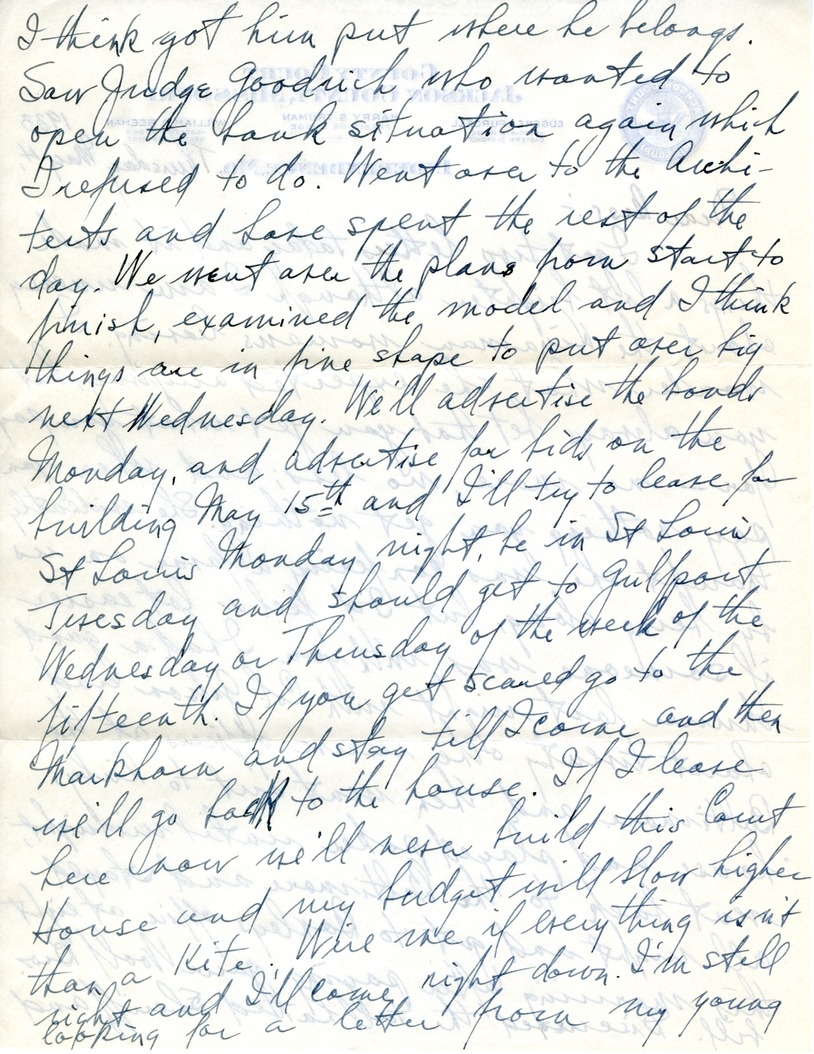 I think got him put where he belongs.
Saw Judge Goodrich who wanted to
open the bank situation again which
I refused to do. Went over to the Archi-
tects and have spent the rest of the
day. We went over the plans from start to
finish, examined the model and I think
things are in fine shape to put over big
next Wednesday. We'll advertise the bonds
Monday, and advertise for bids on the
building May 15th and I'll try to leave for
St Louis Monday night, be in St Louis
Tuesday and should get to Gulfport
Wednesday or Thursday of the week of the
fifteenth. If you get scared go to the
Markham and stay till I come and then
we'll go back to the house. If I leave
here now we'll never build this Court
House and my budget will blow higher
than a Kite. Wire me if everything isn't
right and I'll come right down. I'm still
looking for a letter from my young